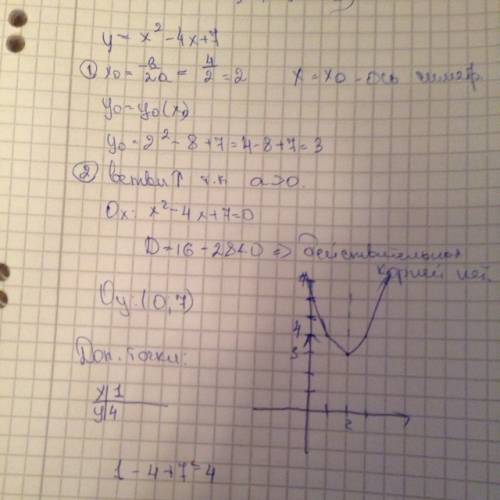 y = x² - 4x + 7
① x₀ = -в/2a = 4/2 = 2 x = x₀ - ось симметр.
y₀ = y₀(x₀)
y₀ = 2² - 8 + 7 = 4 - 8 + 7 = 3
② ветви ↑ т.к a > 0.
Ox: x² - 4x + 7 = 0
D = 16 - 28 < 0 => действительных
корней нет.
Oy: (0; 7)
7
4
3
2
Доп. точки:
x | 1
y | 4
1 - 4 + 7 = 4